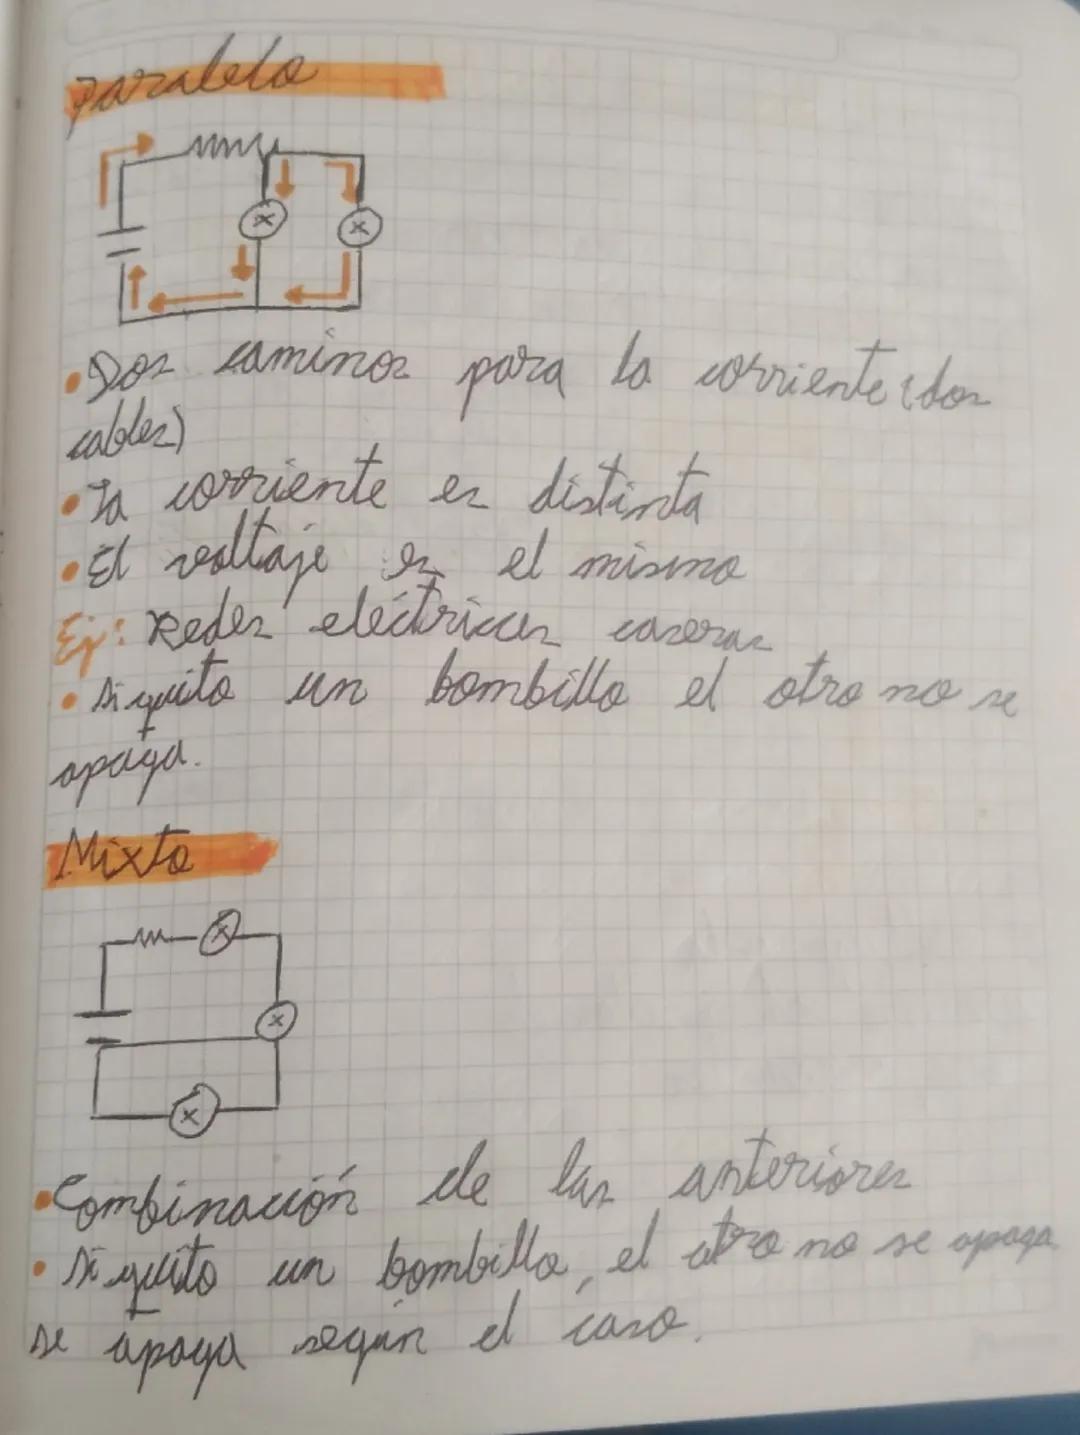 Paralelo
• Dos caminos para la corriente (dos
cables)
• La corriente es distinta
• El voltaje es el mismo
Ej: Redes eléctricas caseras
• Si quito un bombillo el otro no se
apaga.
Mixto
• Combinación de las anteriores
• Si quito un bombillo, el otro no se apaga
se apaga según el caso.